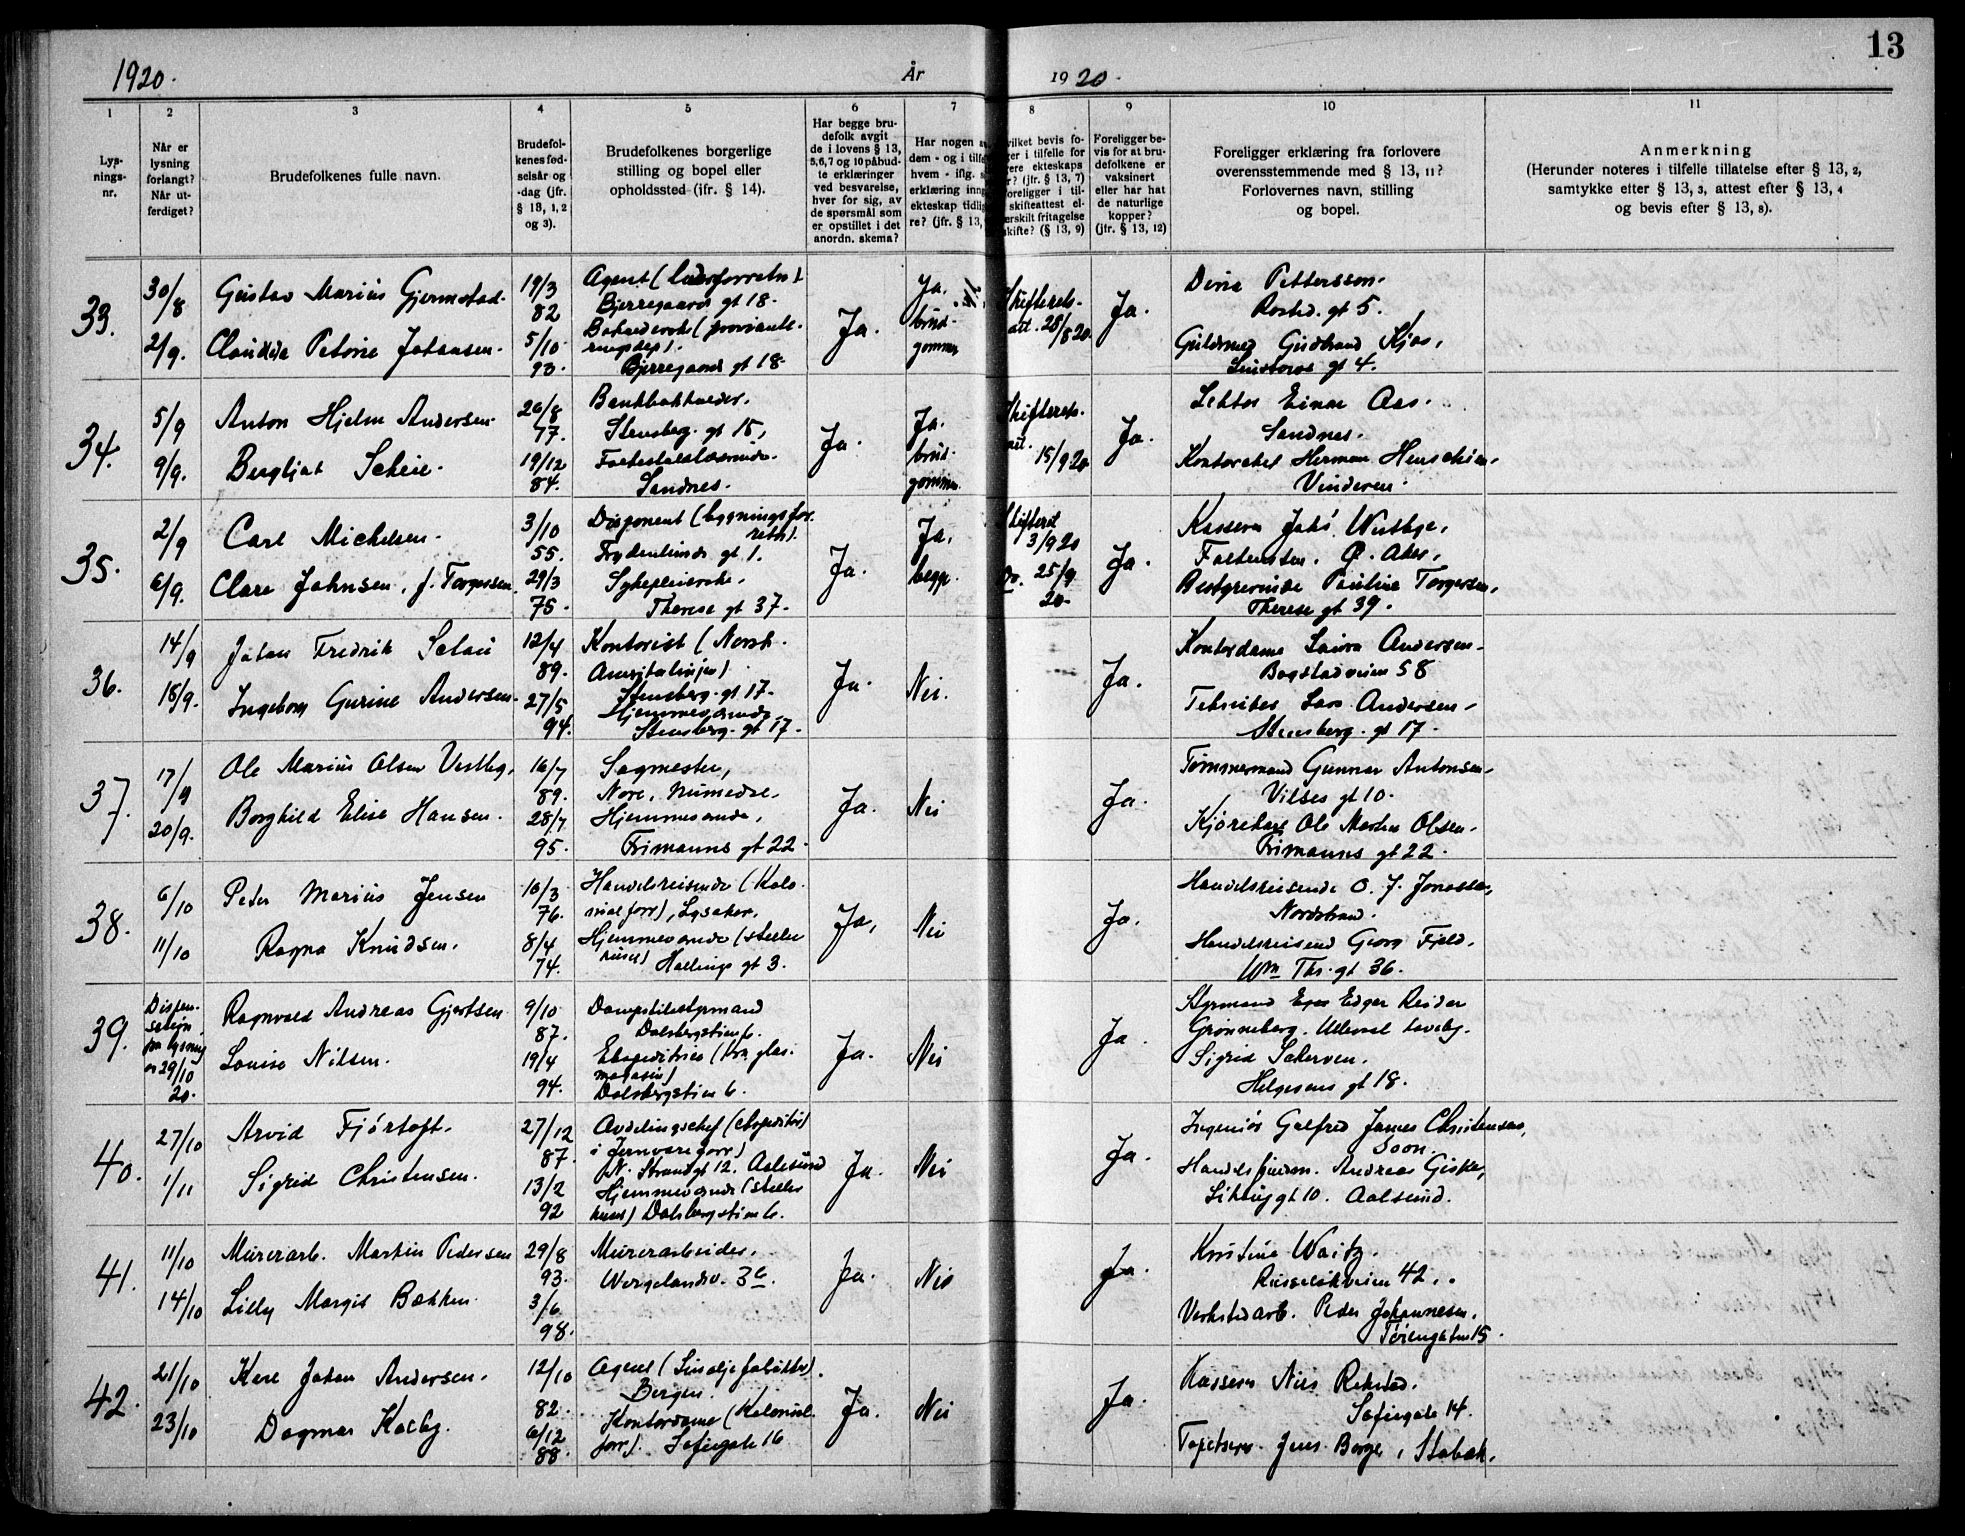 13
1920.
År
1920.
1
2
3
4
5
6
7
8
9
10
11
Lys-
nings-
nr.
Når er
lysning
forlangt?
Når ut-
ferdiget?
Brudefolkenes fulle navn.
Brudefol-
kenes fød-
selsår og
-dag (jfr.
§ 13, 1, 2
og 3).
Brudefolkenes borgerlige
stilling og bopel eller
opholdssted (jfr. § 14).
Har begge bru-
defolk avgit
de i lovens § 13,
5,6,7 og 10 påbud-
te erklæringer
ved besvarelse,
hver for sig, av
de spørsmål som
er opstillet i det
anordn. skema?
Har nogen
dem - og i tilf
hvem - iflg.
erklæring inng
ekteskap tidlig
re? (jfr. § 13,
vilket bevis fo-
ger i tilfelle for
ere ekteskaps
r? (jfr. § 13, 7)
foreligger i til-
skifteattest el-
erskilt fritagelse
skifte? (§ 13, 9)
Foreligger be-
vis for at bru-
defolkene er
vaksinert
eller har hat
de naturlige
kopper?
(jfr. § 13, 12)
Foreligger erklæring fra forlovere
overensstemmende med § 13, 11?
Forlovernes navn, stilling
og bopel.
Anmerkning
(Herunder noteres i tilfelle tillatelse efter § 13, 2,
samtykke etter § 13, 3, attest efter § 13, 4
og bevis efter § 13, 8).
33.
30/8
2/9.
Gustav Marius Gjermstad.
Petrine Johansen.
19/3
82
5/10
93.
Agent
Bjerregaards gt 18.
Bjerregaards gt 18.
Ja.
Ja.
brud-
gommen
28/8 20
Ja.
Pettersson.
gt 5.
Gudbrand
gt 4.
34.
5/9
9/9.
Anton Hjelm Andersen.
Bergljot Scheie.
26/8
77.
19/12
84.
Stensberg. gt 15,
Sandnes.
Ja.
Ja.
brud-
gommen.
15/9 20
Ja.
Lektor Einar Aas.
Sandnes.
Herman
Vinderen.
35.
2/9
6/9.
Carl Michelsen.
Johnsen, f. Torgersen.
3/10
55.
29/3
75.
Disponent (bygningsfor.
Frydenlunds gt 1.
Sykepleierske,
Therese gt 37.
Ja.
Ja,
begge.
3/9 20
do. 25/9
20.
Ja.
Ø. Aker,
Pauline Torgersen,
Therese gt 39.
36.
14/9
18/9.
Johan Fredrik
Ingeborg Gurine Andersen.
12/4
89.
27/5
94.
Kontorist (Norsk.
Amerikalinjen)
Stensberg. gt 17.
Hjemmeværende,
Stensberg. gt 17.
Ja.
Nei.
Ja.
Kontordame Laura Andersen.
Bogstadveien 58
Tekniker Lars Andersen.
Stensberg. gt 17.
37.
17/9
20/9.
Ole Marius Olsen
Borghild Elise Hansen.
16/7
89.
28/7
95.
Sagmester,
Nore, Numedal.
Hjemmeværende,
Frimanns gt 22.
Ja.
Nei
Ja.
Tømmermand Gunnar Antonsen.
Vilses gt 10.
Kjørekar Ole Martin Olsen.
Frimanns gt 22.
38.
6/10
11/10
Peter Marius Jensen
Ragna Knudsen.
10/3
76.
8/4
74.
Handelsreisende (Kolo.
nialforr), Lysaker.
Hjemmeværende (steller
huset) Hallings gt 3.
Ja,
Nei
Ja.
Handelsreisende O. J.
Nordstrand.
Handelsreisend Georg Fjeld.
Wm Thr. gt 36.
39.
Dispen-
sation
fra lysning
29/10
20.
Ragnvald Andreas Gjertsen
Louise Nilsen.
9/10
87.
19/4
94.
Dalsbergstien 6.
magasin)
Dalsbergstien 6.
Ja.
Nei
Ja.
Styrmand Edgar Reidar
Grønneberg. Ulleval haveby.
Sigrid
Helgesens gt 18.
40.
27/10
1/11
Arvid Fjørtoft.
Sigrid Christensen.
27/12
87.
13/2
92
Avdelingschef
i Jernvareforr)
N. Strandgt 12. Aalesund
Hjemmeværende (steller
huset) Dalsbergstien 6.
Ja.
Nei
Ja.
Ingeniør James Christensen,
Soon.
Andreas Giske,
gt 10. Aalesund.
41.
11/10
14/10
Murerarb. Martin Pedersen
Lilly Margit Bakken.
29/8
93.
3/6
98.
Murerarbeider.
Wergelandsv. 3
Ja.
Nei
Ja.
Kristine Waitz.
42.
Verkstedarb. Peder Johannesen.
Tøiengaten 15.
42.
21/10
23/10
Johan Andersen.
Dagmar
12/10
82.
6/12
88.
Agent
Bergen.
Kontordame (Kolonial
forr). Sofiegate 16
Ja.
Nei
Ja.
Kasserer Nils
Sofiegate 14.
Jens Borge, Stabæk.